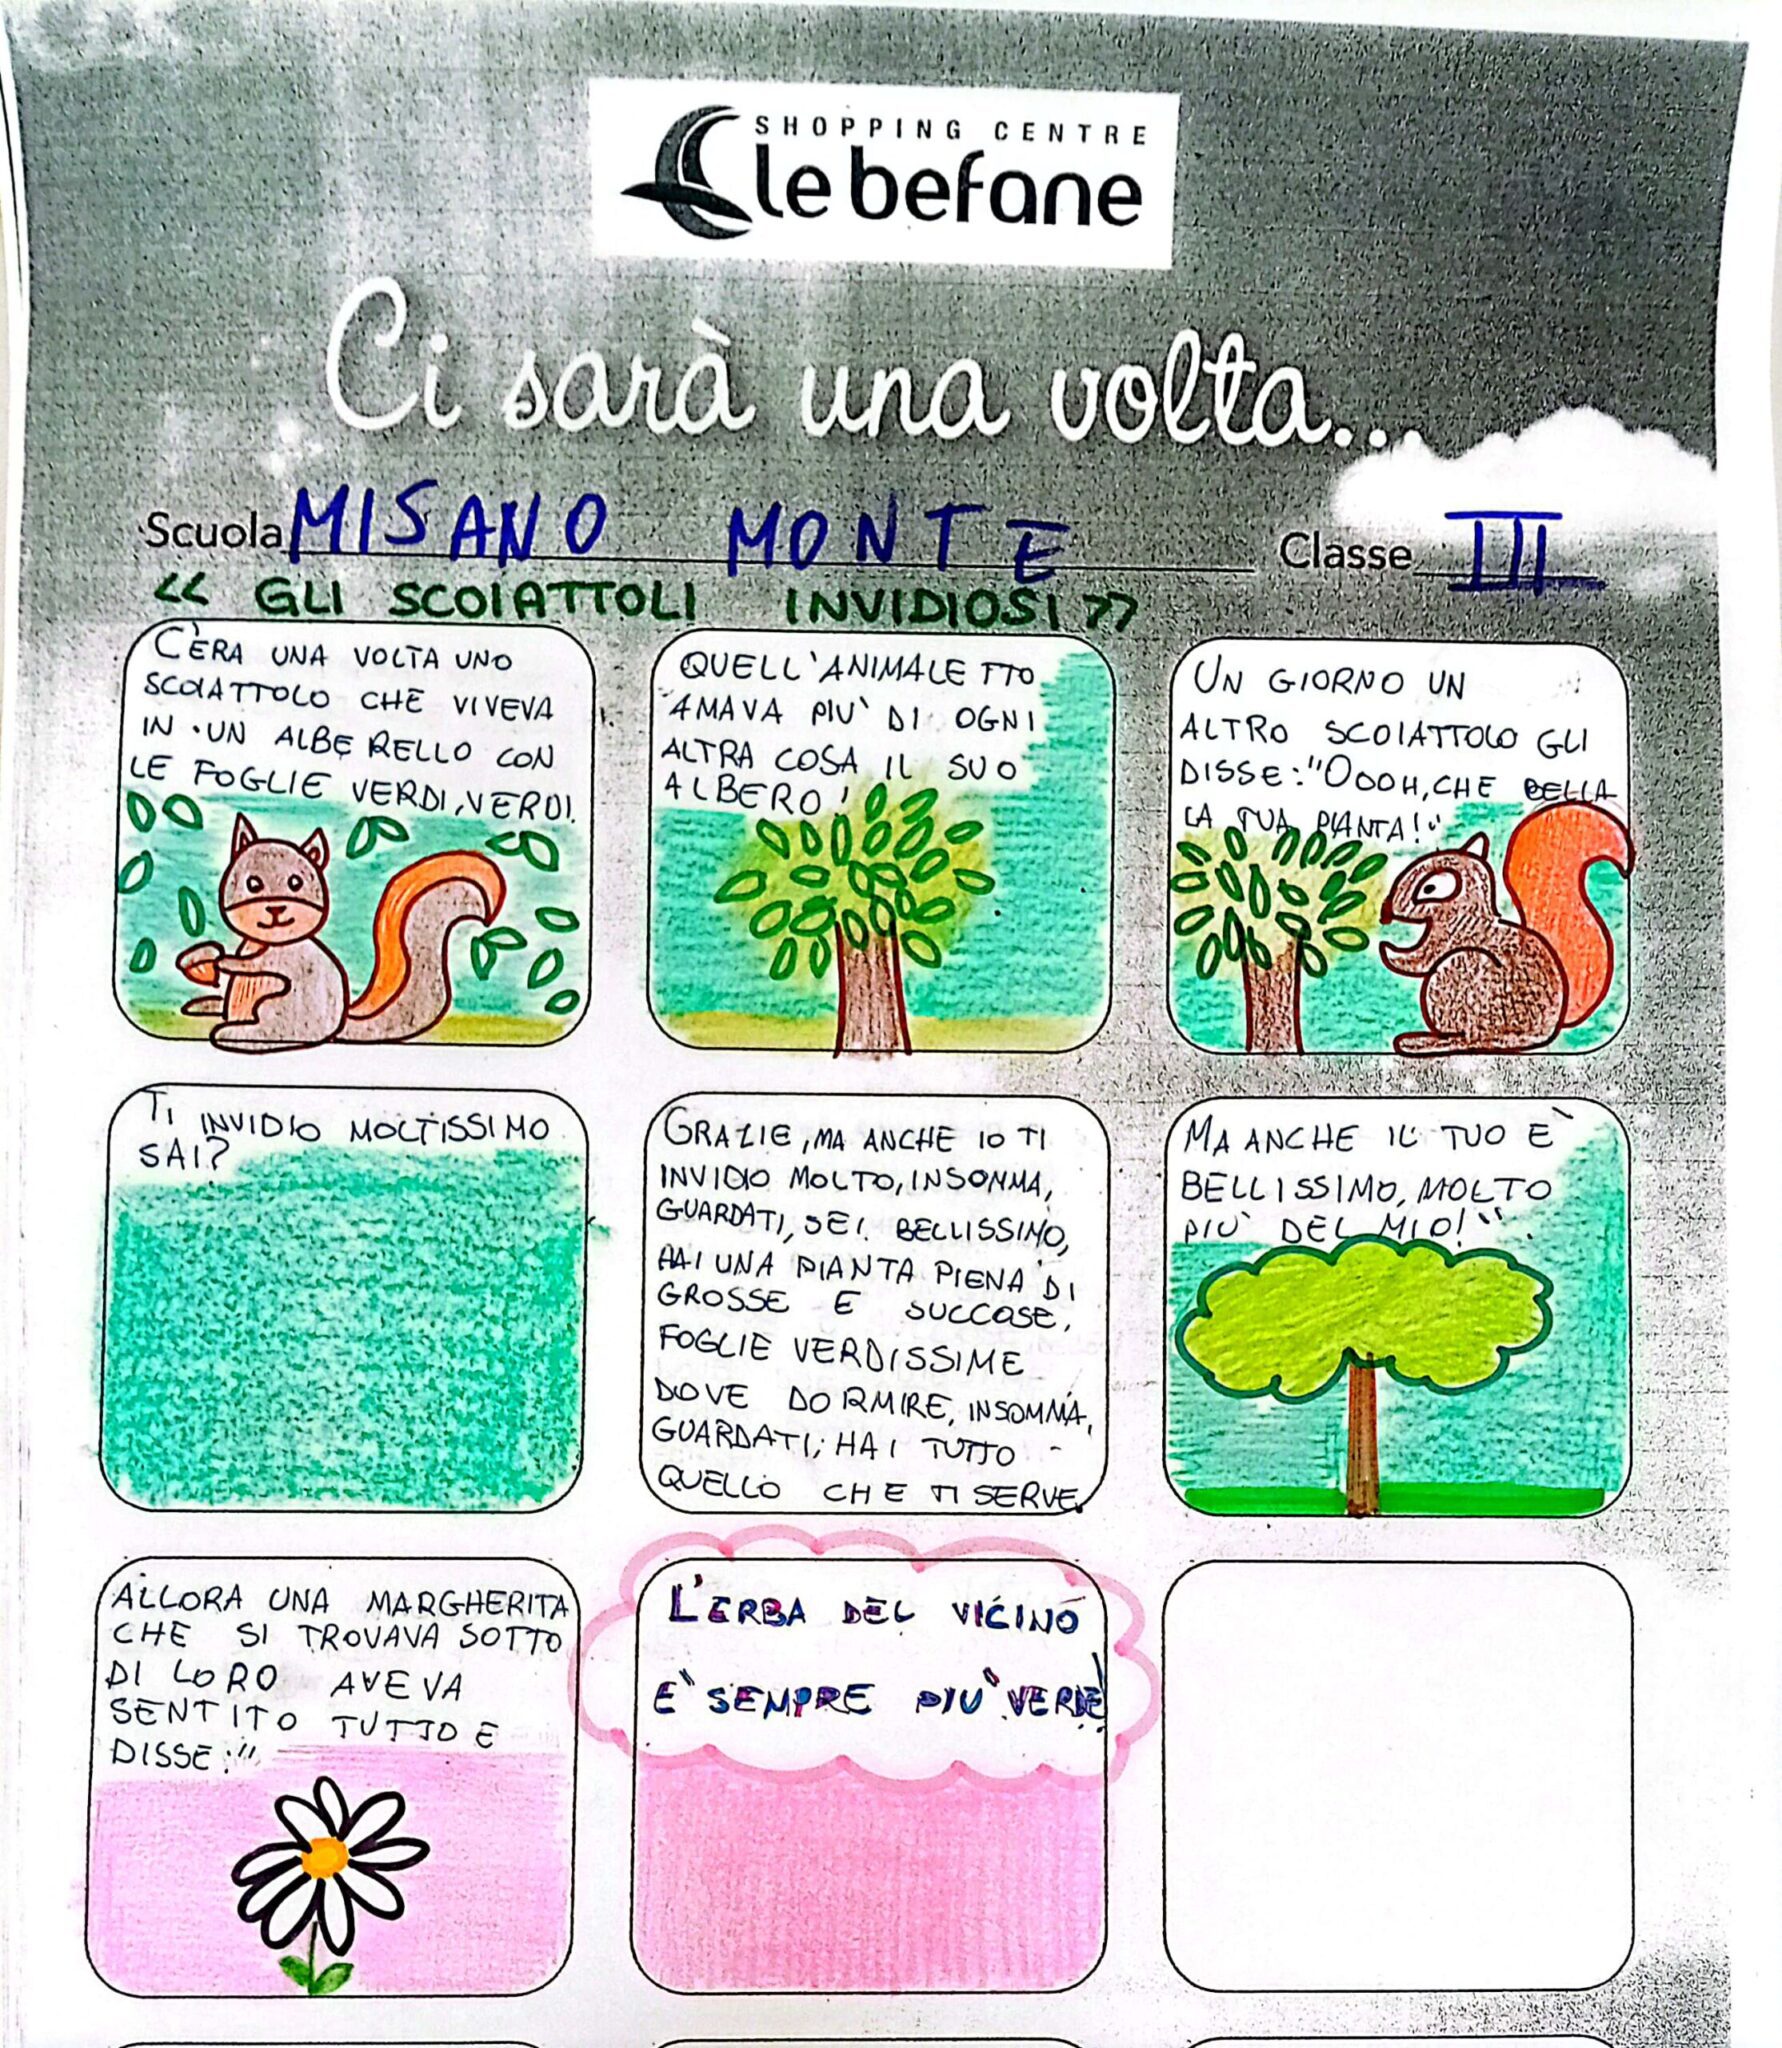 SHOPPING CENTRE
le befane
Ci sarà una volta...
Scuola MISANO MONTE Classe III
<< GLI SCOIATTOLI INVIDIOSI >>
C'ERA UNA VOLTA UNO
SCOIATTOLO CHE VIVEVA
IN UN ALBERELLO CON
LE FOGLIE VERDI, VERDI.
QUELL'ANIMALETTO
AMAVA PIU' DI OGNI
ALTRA COSA IL SUO
ALBERO!
UN GIORNO UN
ALTRO SCOIATTOLO GLI
DISSE: "OOOH, CHE BELLA
LA TUA PIANTA!"
TI INVIDIO MOLTISSIMO
SAI?
GRAZIE, MA ANCHE IO TI
INVIDIO MOLTO, INSOMMA,
GUARDATI, SEI BELLISSIMO,
HAI UNA PIANTA PIENA DI
GROSSE E SUCCOSE,
FOGLIE VERDISSIME
DOVE DORMIRE, INSOMMA,
GUARDATI, HAI TUTTO
QUELLO CHE TI SERVE.
MA ANCHE IL TUO E'
BELLISSIMO, MOLTO
PIU' DEL MIO!"
ALLORA UNA MARGHERITA
CHE SI TROVAVA SOTTO
DI LORO AVEVA
SENTITO TUTTO E
DISSE: "
L'ERBA DEL VICINO
E' SEMPRE PIU' VERDE!